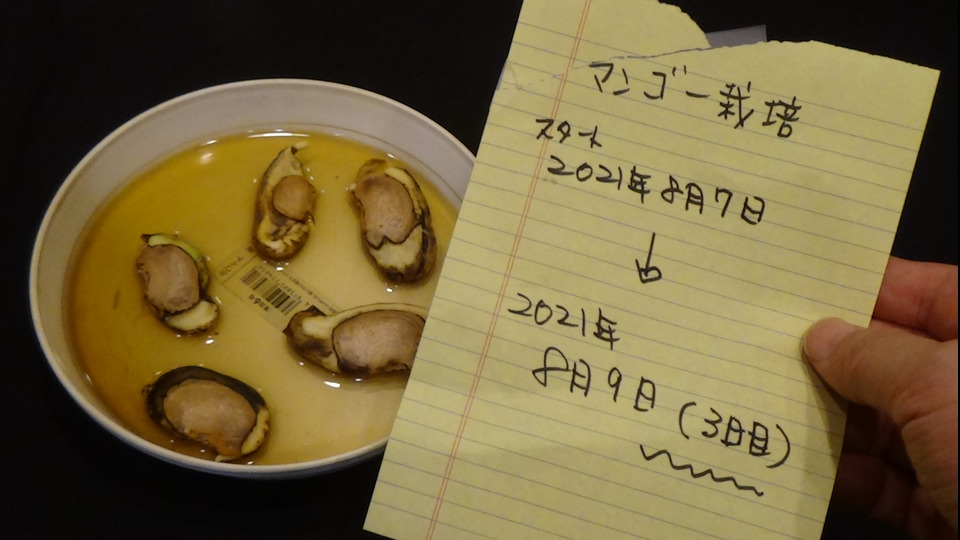 マンゴー栽培
スタート
2021年8月7日
↓
2021年
8月9日(3日目)